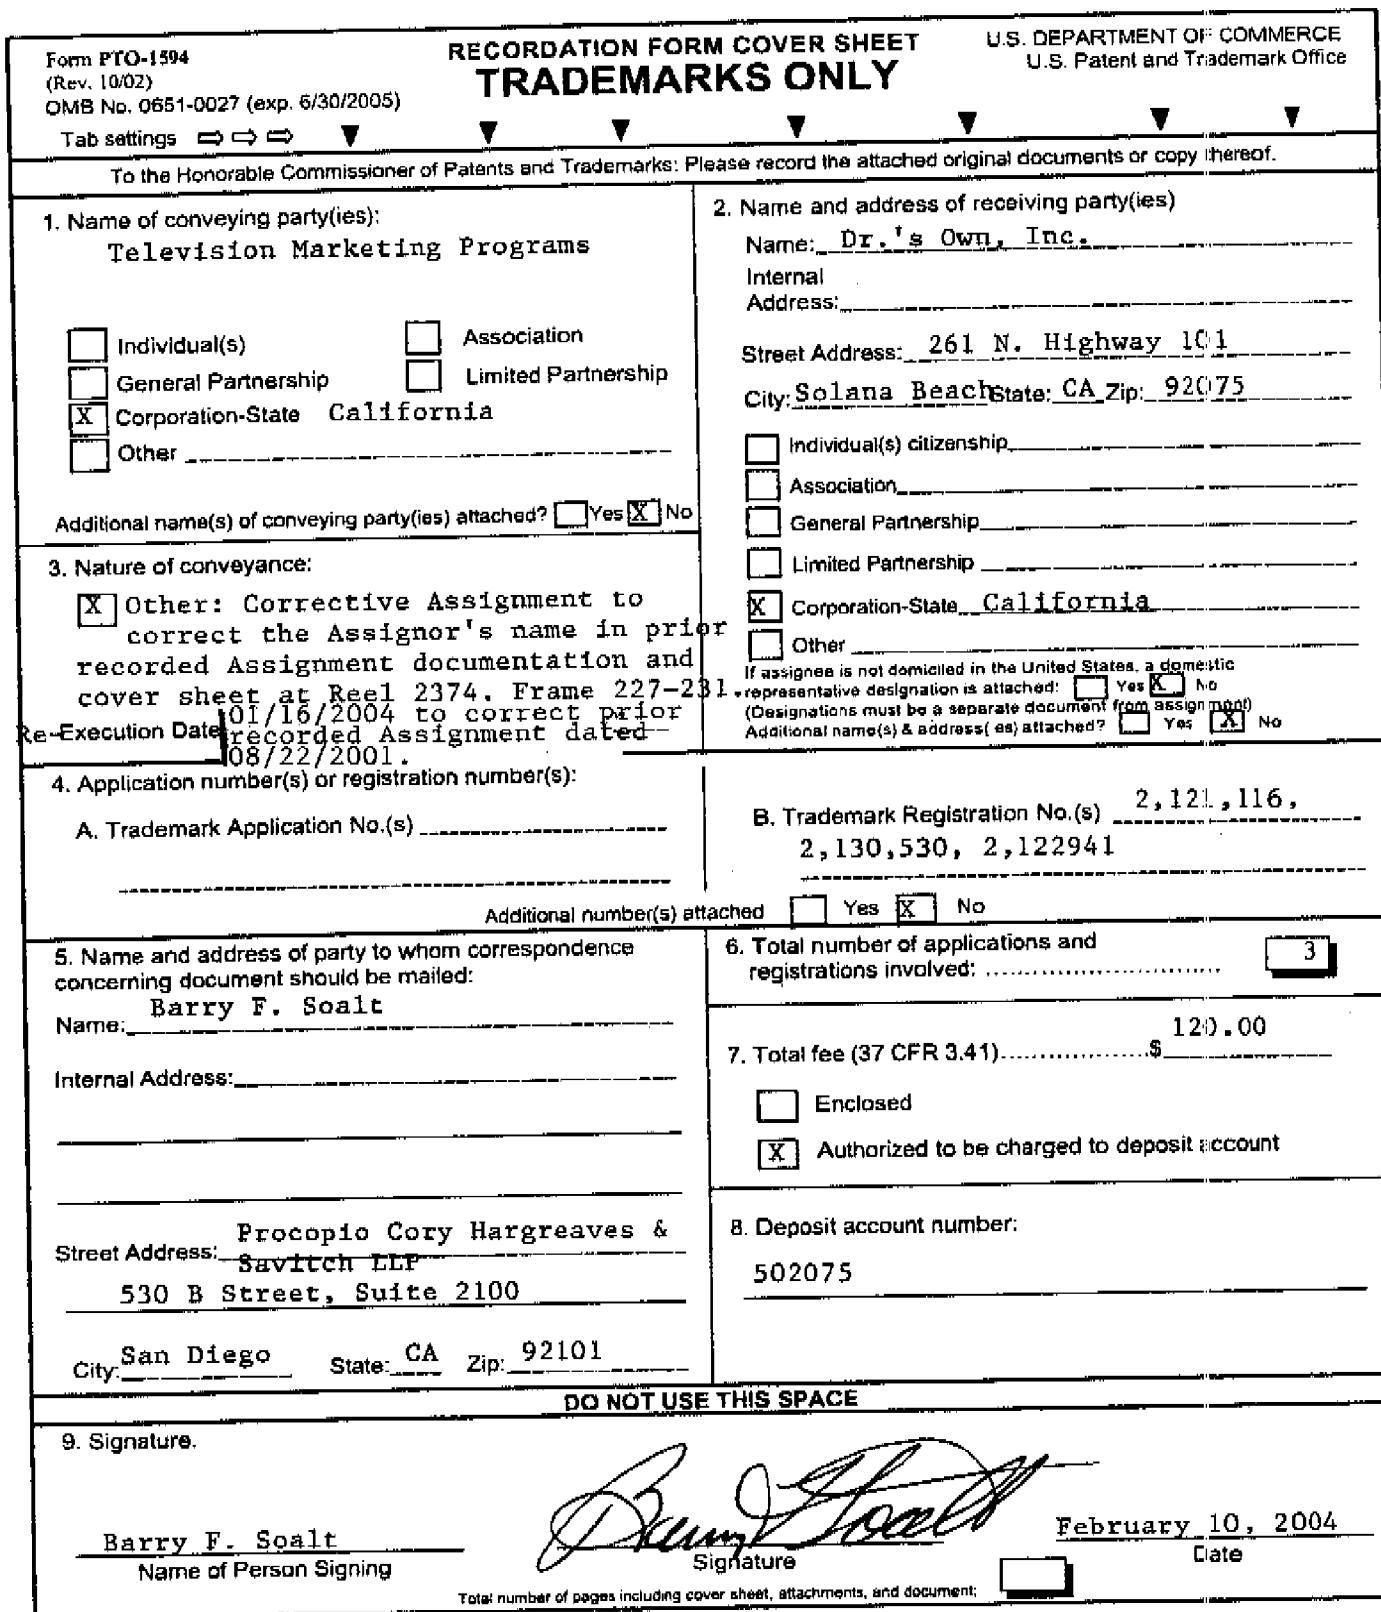 Form PTO-1594
(Rev. 10/02)
OMB No. 0651-0027 (exp. 6/30/2005)
Tab settings
RECORDATION FORM COVER SHEET
TRADEMARKS ONLY
U.S. DEPARTMENT OF COMMERCE
U.S. Patent and Trademark Office
To the Honorable Commissioner of Patents and Trademarks: Please record the attached original documents or copy thereof.
1. Name of conveying party(ies):
Television Marketing Programs
Individual(s)
Association
General Partnership
Limited Partnership
X Corporation-State California
Other
Additional name(s) of conveying party(ies) attached? Yes X No
2. Name and address of receiving party(ies)
Name: Dr.'s Own, Inc.
Internal
Address:
Street Address: 261 N. Highway 101
City: Solana Beach State: CA Zip: 92075
Individual(s) citizenship
Association
General Partnership
Limited Partnership
X Corporation-State California
Other
If assignee is not domiciled in the United States, a domestic
representative designation is attached: Yes X No
(Designations must be a separate document from assignment)
Additional name(s) & address( es) attached? Yes X No
3. Nature of conveyance:
X Other: Corrective Assignment to
correct the Assignor's name in prior
recorded Assignment documentation and
cover sheet at Reel 2374. Frame 227-231.
Re-Execution Date 01/16/2004 to correct prior
recorded Assignment dated
08/22/2001.
4. Application number(s) or registration number(s):
A. Trademark Application No.(s)
B. Trademark Registration No.(s) 2,121,116,
2,130,530, 2,122941
Additional number(s) attached Yes X No
5. Name and address of party to whom correspondence
concerning document should be mailed:
Name: Barry F. Soalt
Internal Address:
Street Address: Procopio Cory Hargreaves &
Savitch LLP
530 B Street, Suite 2100
City: San Diego State: CA Zip: 92101
6. Total number of applications and
registrations involved: 3
7. Total fee (37 CFR 3.41) $ 120.00
Enclosed
X Authorized to be charged to deposit account
8. Deposit account number:
502075
DO NOT USE THIS SPACE
9. Signature.
Barry F. Soalt
Name of Person Signing
Barry F Soalt
Signature
February 10, 2004
Date
Total number of pages including cover sheet, attachments, and document: